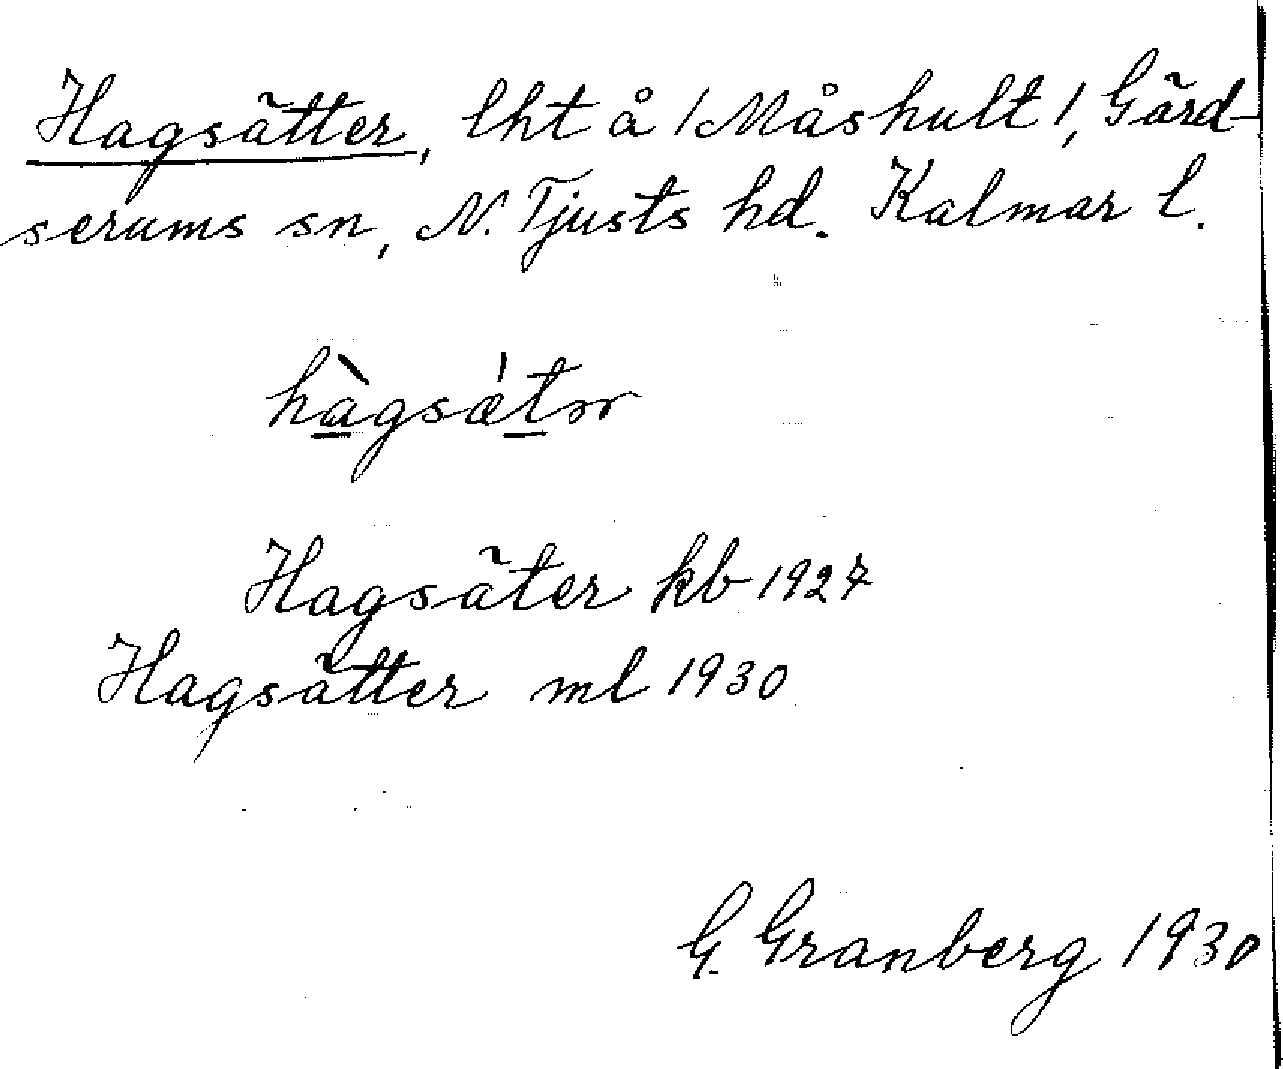 Hagsätter, lht å /Måshult/, Gärd-
serums sn, N. Tjusts hd. Kalmar l.
hàgsǽtər
Hagsäter kb 1927
Hagsätter ml 1930
G. Granberg 1930